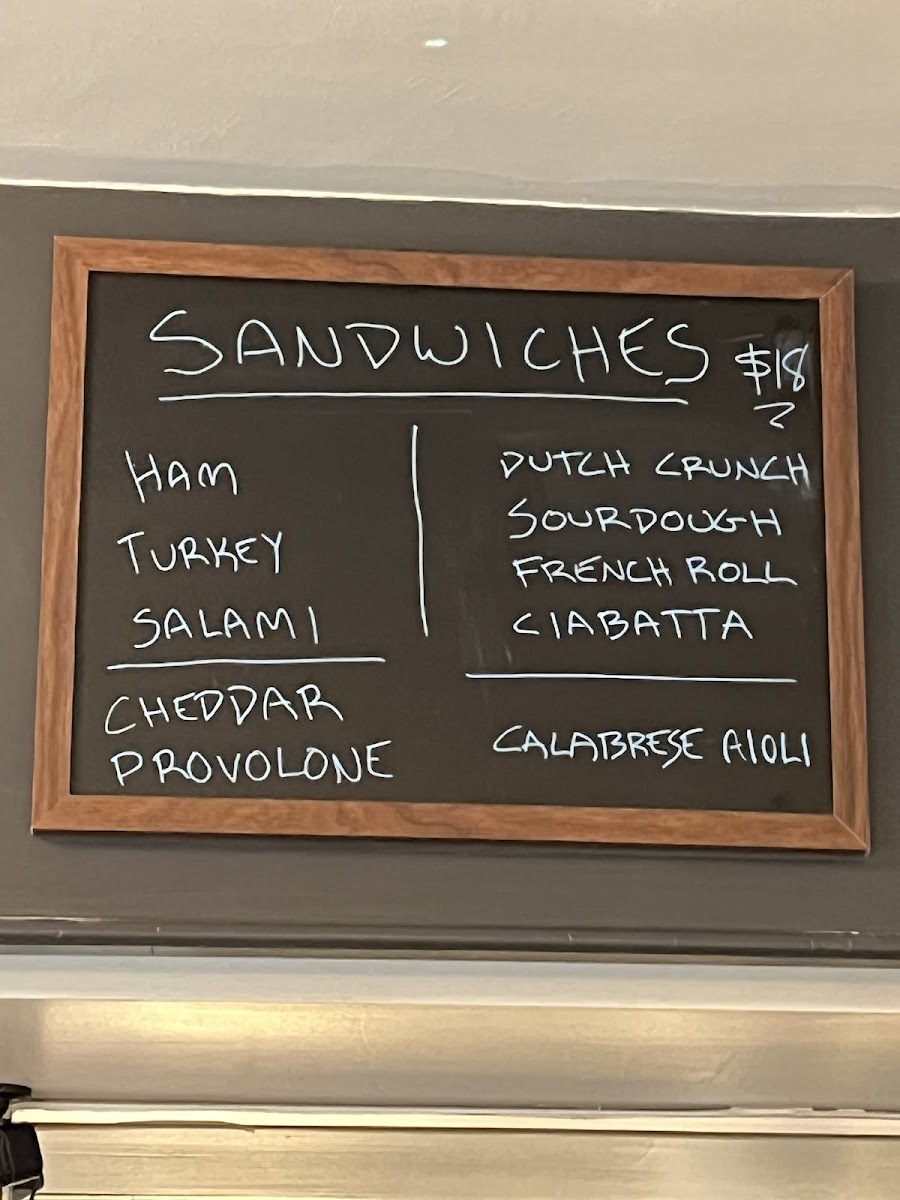 SANDWICHES $18
HAM
TURKEY
SALAMI
CHEDDAR
PROVOLONE
DUTCH CRUNCH
SOURDOUGH
FRENCH ROLL
CIABATTA
CALABRESE AIOLI